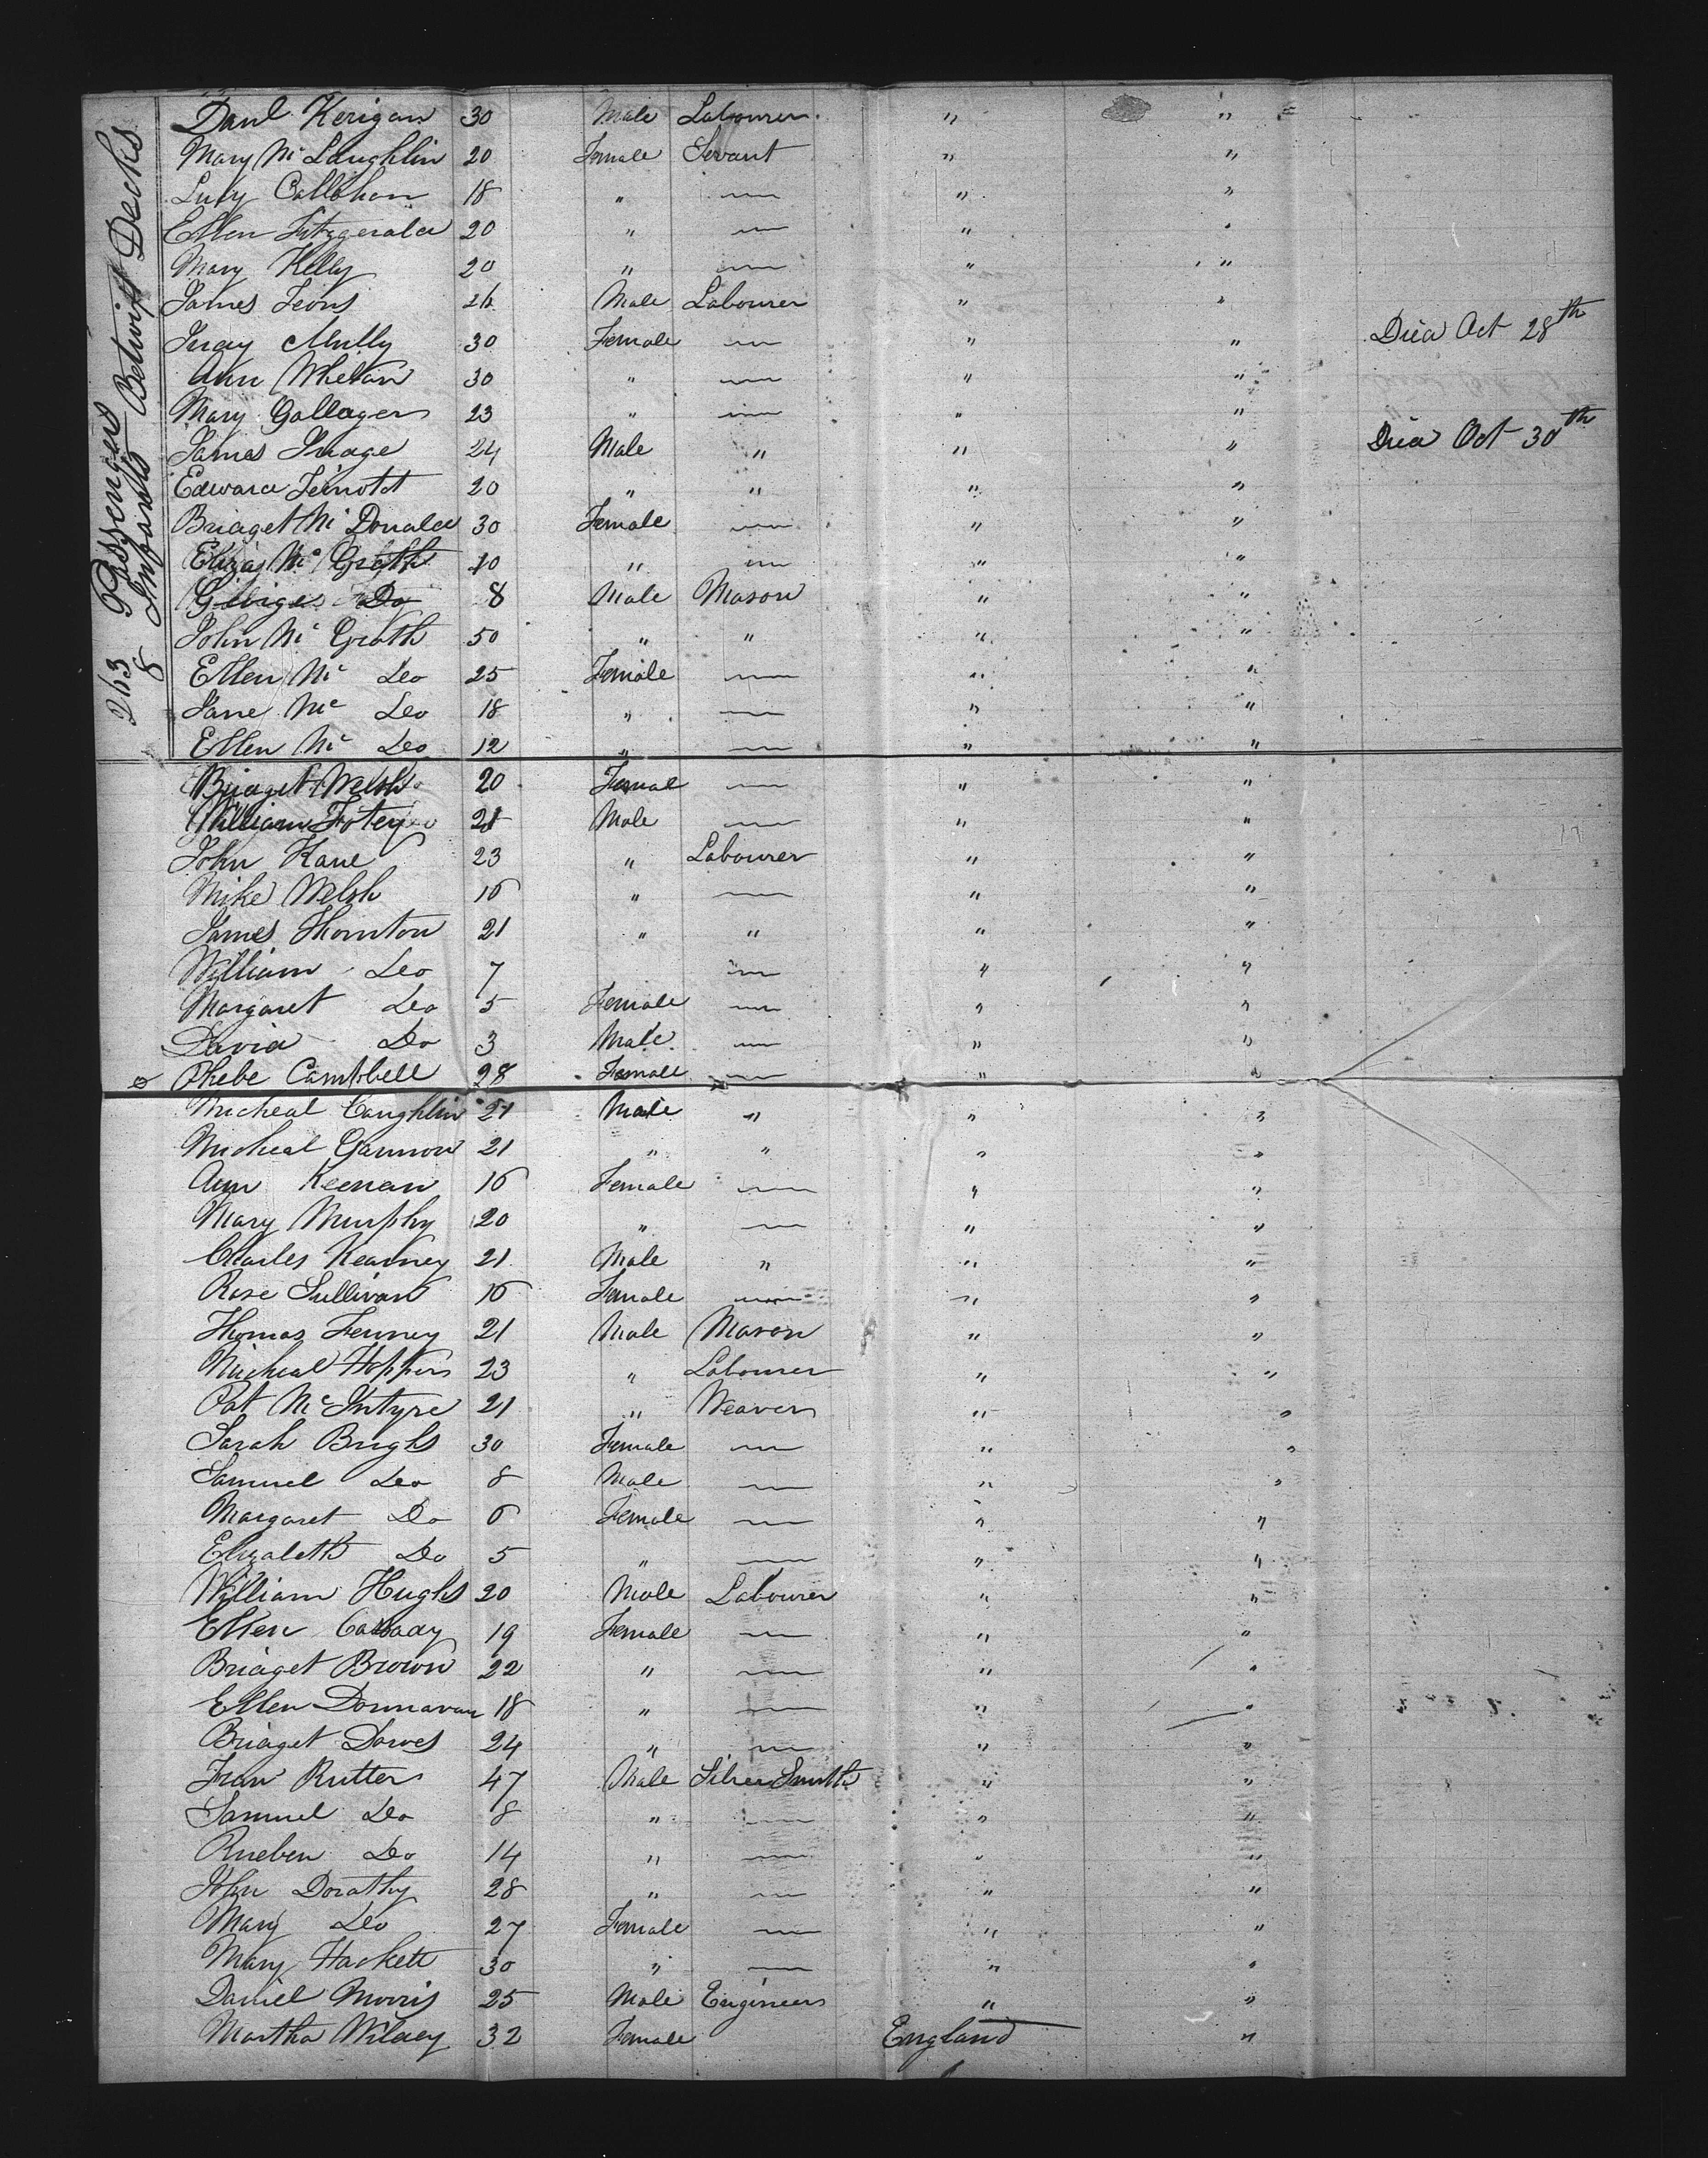 263 Passengers Betwixt Decks
8 Infants
Danl Kerigan 30 Male Labourer " "
Mary Mc Laughlin 20 Female Servant " "
Callahan 18 " — " "
Ellen Fitzgerald 20 " — " "
Mary Kelly 20 " — " "
James 26 Male Labourer " "
Mully 30 Female — " " Died Oct 28th
Ann Whelan 30 " — " "
Mary Gallager 23 " — " "
James 24 Male " " " Died Oct 30th
Edward 20 " " " "
Bridget Mc Donald 30 Female — " "
Eliza Mc Grath 10 " — " "
Do 8 Male Mason " "
John Mc Grath 50 " " " "
Ellen Mc Do 25 Female — " "
Jane Mc Do 18 " — " "
Ellen Mc Do 12 " — " "
Bridget Welsh 20 Femal — " "
William Foley Male — " "
John Kane 23 " Labourer " "
Mike Welsh 16 " — " "
James Thornton 21 " " " "
William Do 7 — " "
Margaret Do 5 Female — " "
David Do 3 Male — " "
Phebe Campbell 28 Female — " "
Micheal Caughlin 21 Male " " "
Micheal Gannon 21 " " " "
Ann Keenan 16 Female — " "
Mary Murphy 20 " — " "
Charles Kearney 21 Male " " "
Rose Sullivan 16 Female — " "
Thomas Fenney 21 Male Mason " "
Micheal Hoppins 23 " Labourer " "
Pat McIntyre 21 " Weaver " "
Sarah Brighs 30 Female — " "
Samuel Do 8 Male — " "
Margaret Do 6 Female — " "
Elizabeth Do 5 " — " "
William Hughs 20 Male Labourer " "
Ellen 19 Female — " "
Bridget Brown 22 " — " "
Ellen Donnavan 18 " — " "
Bridget Dowes 24 " — " "
Rutter 47 Male Silver Smith " "
Samuel Do 8 " — " "
Rueben Do 14 " — " "
John Dorathy 28 " — " "
Mary Do 27 Female — " "
Mary Hackett 30 " — " "
Daniel Morris 25 Male Engineer " "
Martha 32 Female England "